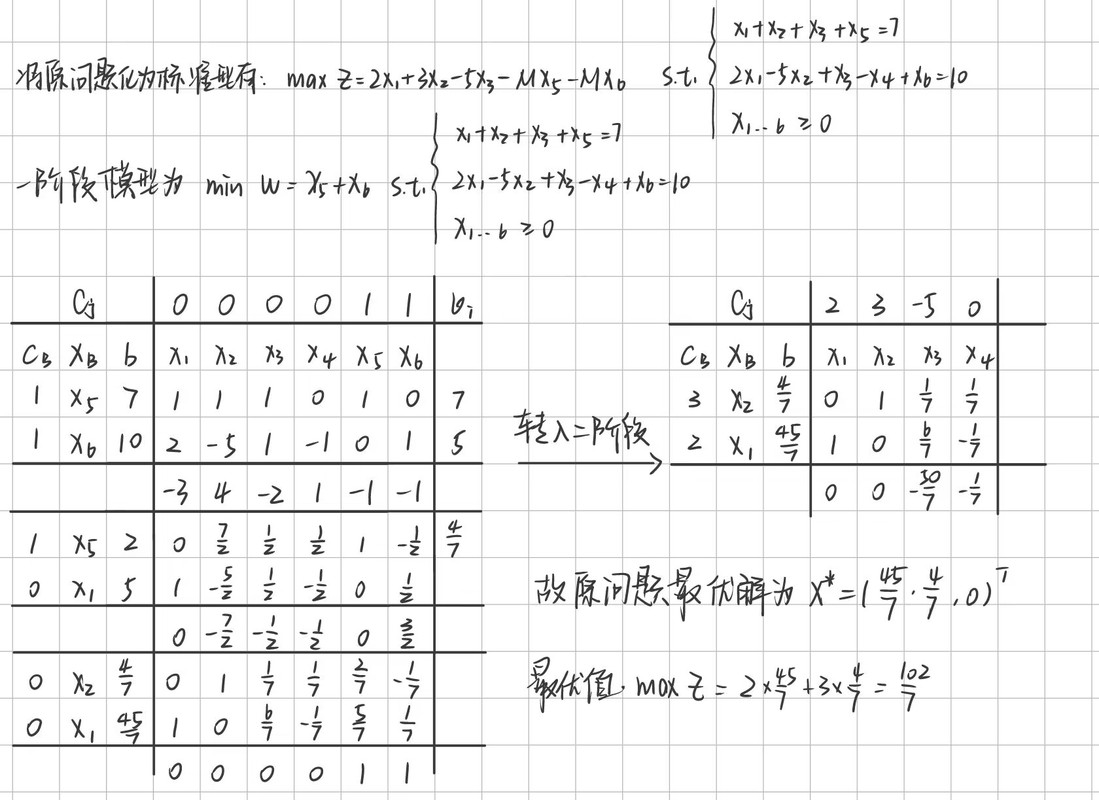 将原问题化为标准型有: max Z=2x₁+3x₂-5x₃-Mx₅-Mx₆ s.t. { x₁+x₂+x₃+x₅=7
2x₁-5x₂+x₃-x₄+x₆=10
x₁..₆ ≥0
一阶段模型为 min W=x₅+x₆ s.t. { x₁+x₂+x₃+x₅=7
2x₁-5x₂+x₃-x₄+x₆=10
x₁..₆ ≥0
Cj 0 0 0 0 1 1 θᵢ
C_B X_B b x₁ x₂ x₃ x₄ x₅ x₆
1 x₅ 7 1 1 1 0 1 0 7
1 x₆ 10 2 -5 1 -1 0 1 5
-3 4 -2 1 -1 -1
1 x₅ 2 0 7/2 1/2 1/2 1 -1/2 4/7
0 x₁ 5 1 -5/2 1/2 -1/2 0 1/2
0 -7/2 -1/2 -1/2 0 3/2
0 x₂ 4/7 0 1 1/7 1/7 2/7 -1/7
0 x₁ 45/7 1 0 6/7 -1/7 5/7 1/7
0 0 0 0 1 1
转入二阶段
Cj 2 3 -5 0
C_B X_B b x₁ x₂ x₃ x₄
3 x₂ 4/7 0 1 1/7 1/7
2 x₁ 45/7 1 0 6/7 -1/7
0 0 -50/7 -1/7
故原问题最优解为 X*=(45/7, 4/7, 0)ᵀ
最优值. max Z = 2×45/7+3×4/7 = 102/7